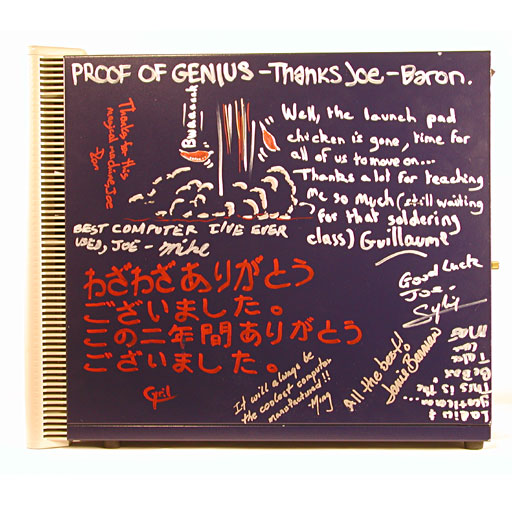 PROOF OF GENIUS - Thanks Joe - Baron.
Thanks for this
magical machine, Joe
Don
Baaaaak
Well, the launch pad
chicken is gone, time for
all of us to move on...
Thanks a lot for teaching
me so much (still waiting
for that soldering
class) Guillaume
BEST COMPUTER I'VE EVER
USED, JOE - Mike
わざわざありがとう
ございました。
この二年間ありがとう
ございました。
Cyril
Good Luck
Joe.
Sylvie
It will always be
the coolest computer
manufactured!!
-Ming
All the best!!
Ladies &
gentlemen...
This is the
BeBox